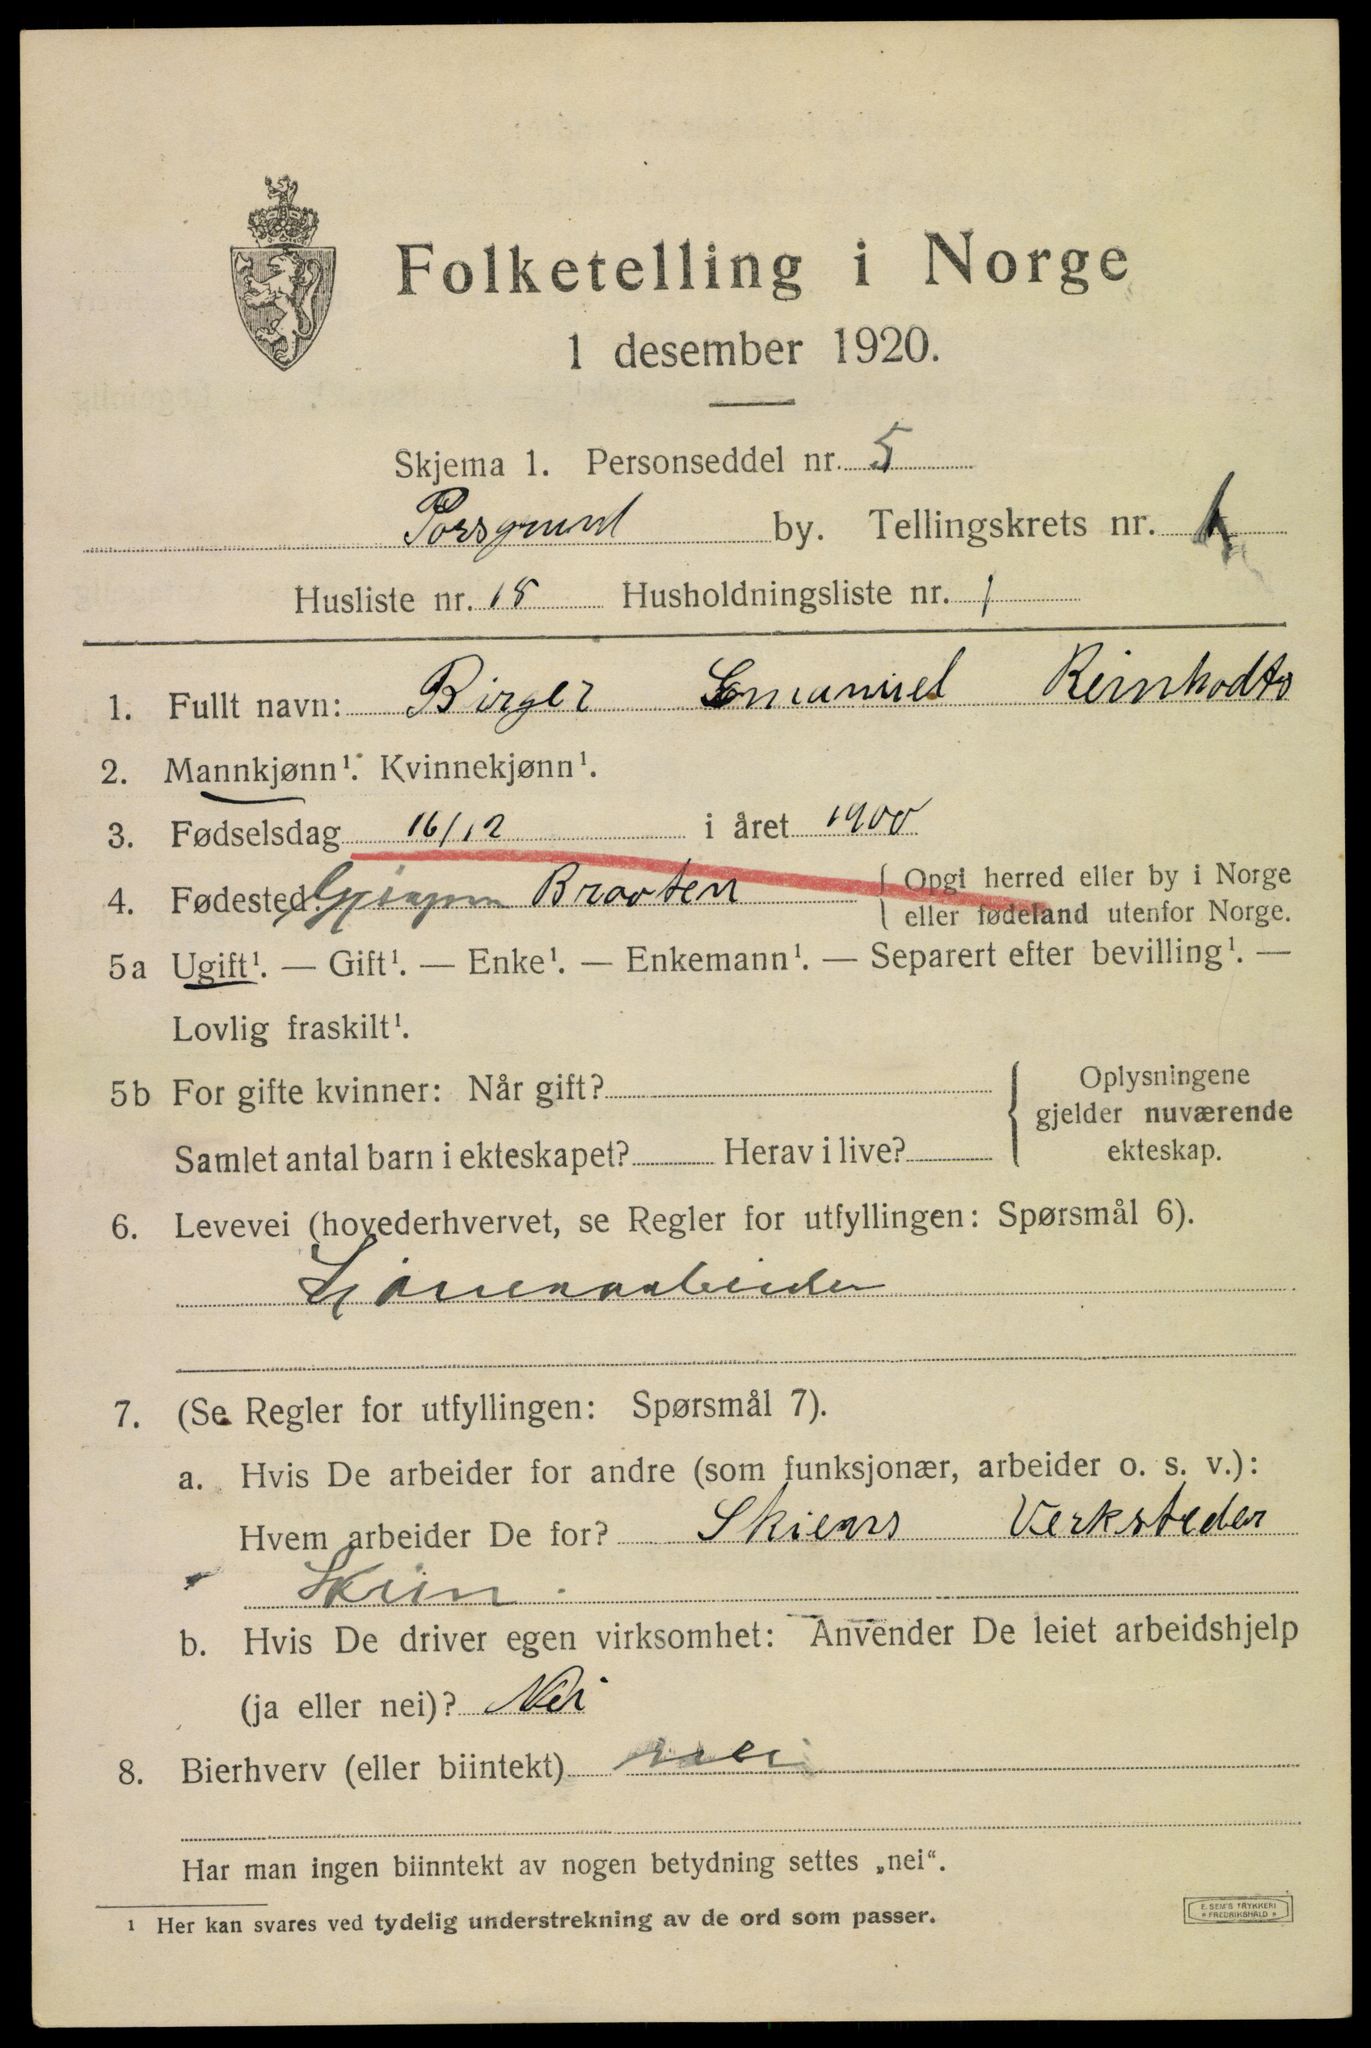 Folketelling i Norge
1 desember 1920.
Skjema 1. Personseddel nr. 5
Porsgrund by. Tellingskrets nr.
Husliste nr. 18 Husholdningsliste nr. 1
1. Fullt navn: Birger Emanuel Reinhodts
2. Mannkjønn¹. Kvinnekjønn¹.
3. Fødselsdag 16/12 i året 1900
4. Fødested: Gjerpen Braaten { Opgi herred eller by i Norge
eller fødeland utenfor Norge.
5a Ugift¹. — Gift¹. — Enke¹. — Enkemann¹. — Separert efter bevilling¹. —
Lovlig fraskilt¹.
5b For gifte kvinner: Når gift? { Oplysningene
gjelder nuværende
Samlet antal barn i ekteskapet? Herav i live? ekteskap.
6. Levevei (hovederhvervet, se Regler for utfyllingen: Spørsmål 6).
7. (Se Regler for utfyllingen: Spørsmål 7).
a. Hvis De arbeider for andre (som funksjonær, arbeider o. s. v.):
Hvem arbeider De for? Skiens Verksteder
Skien.
b. Hvis De driver egen virksomhet: Anvender De leiet arbeidshjelp
(ja eller nei)? Nei
8. Bierhverv (eller biintekt) nei
Har man ingen biinntekt av nogen betydning settes „nei“.
¹ Her kan svares ved tydelig understrekning av de ord som passer.
E. SEM'S TRYKKERI
* FREDRIKSHALD *